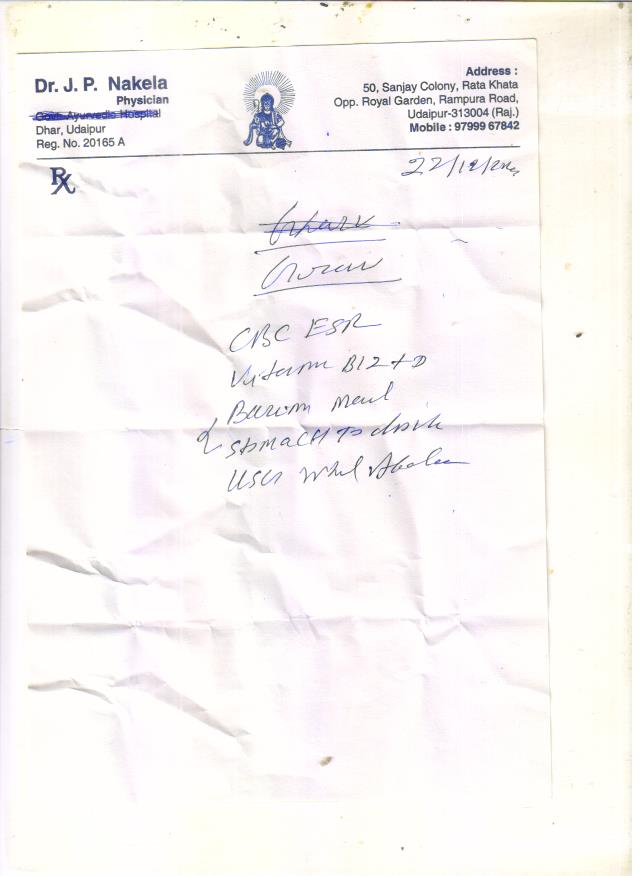 Dr. J. P. Nakela
Physician
Govt. Ayurvedic Hospital
Dhar, Udaipur
Reg. No. 20165 A
Address :
50, Sanjay Colony, Rata Khata
Opp. Royal Garden, Rampura Road,
Udaipur-313004 (Raj.)
Mobile : 97999 67842
Rx
22/12/
CBC ESR
Vitamin B12 + D
Barium meal
Stomach to
USG Whole Abdomen